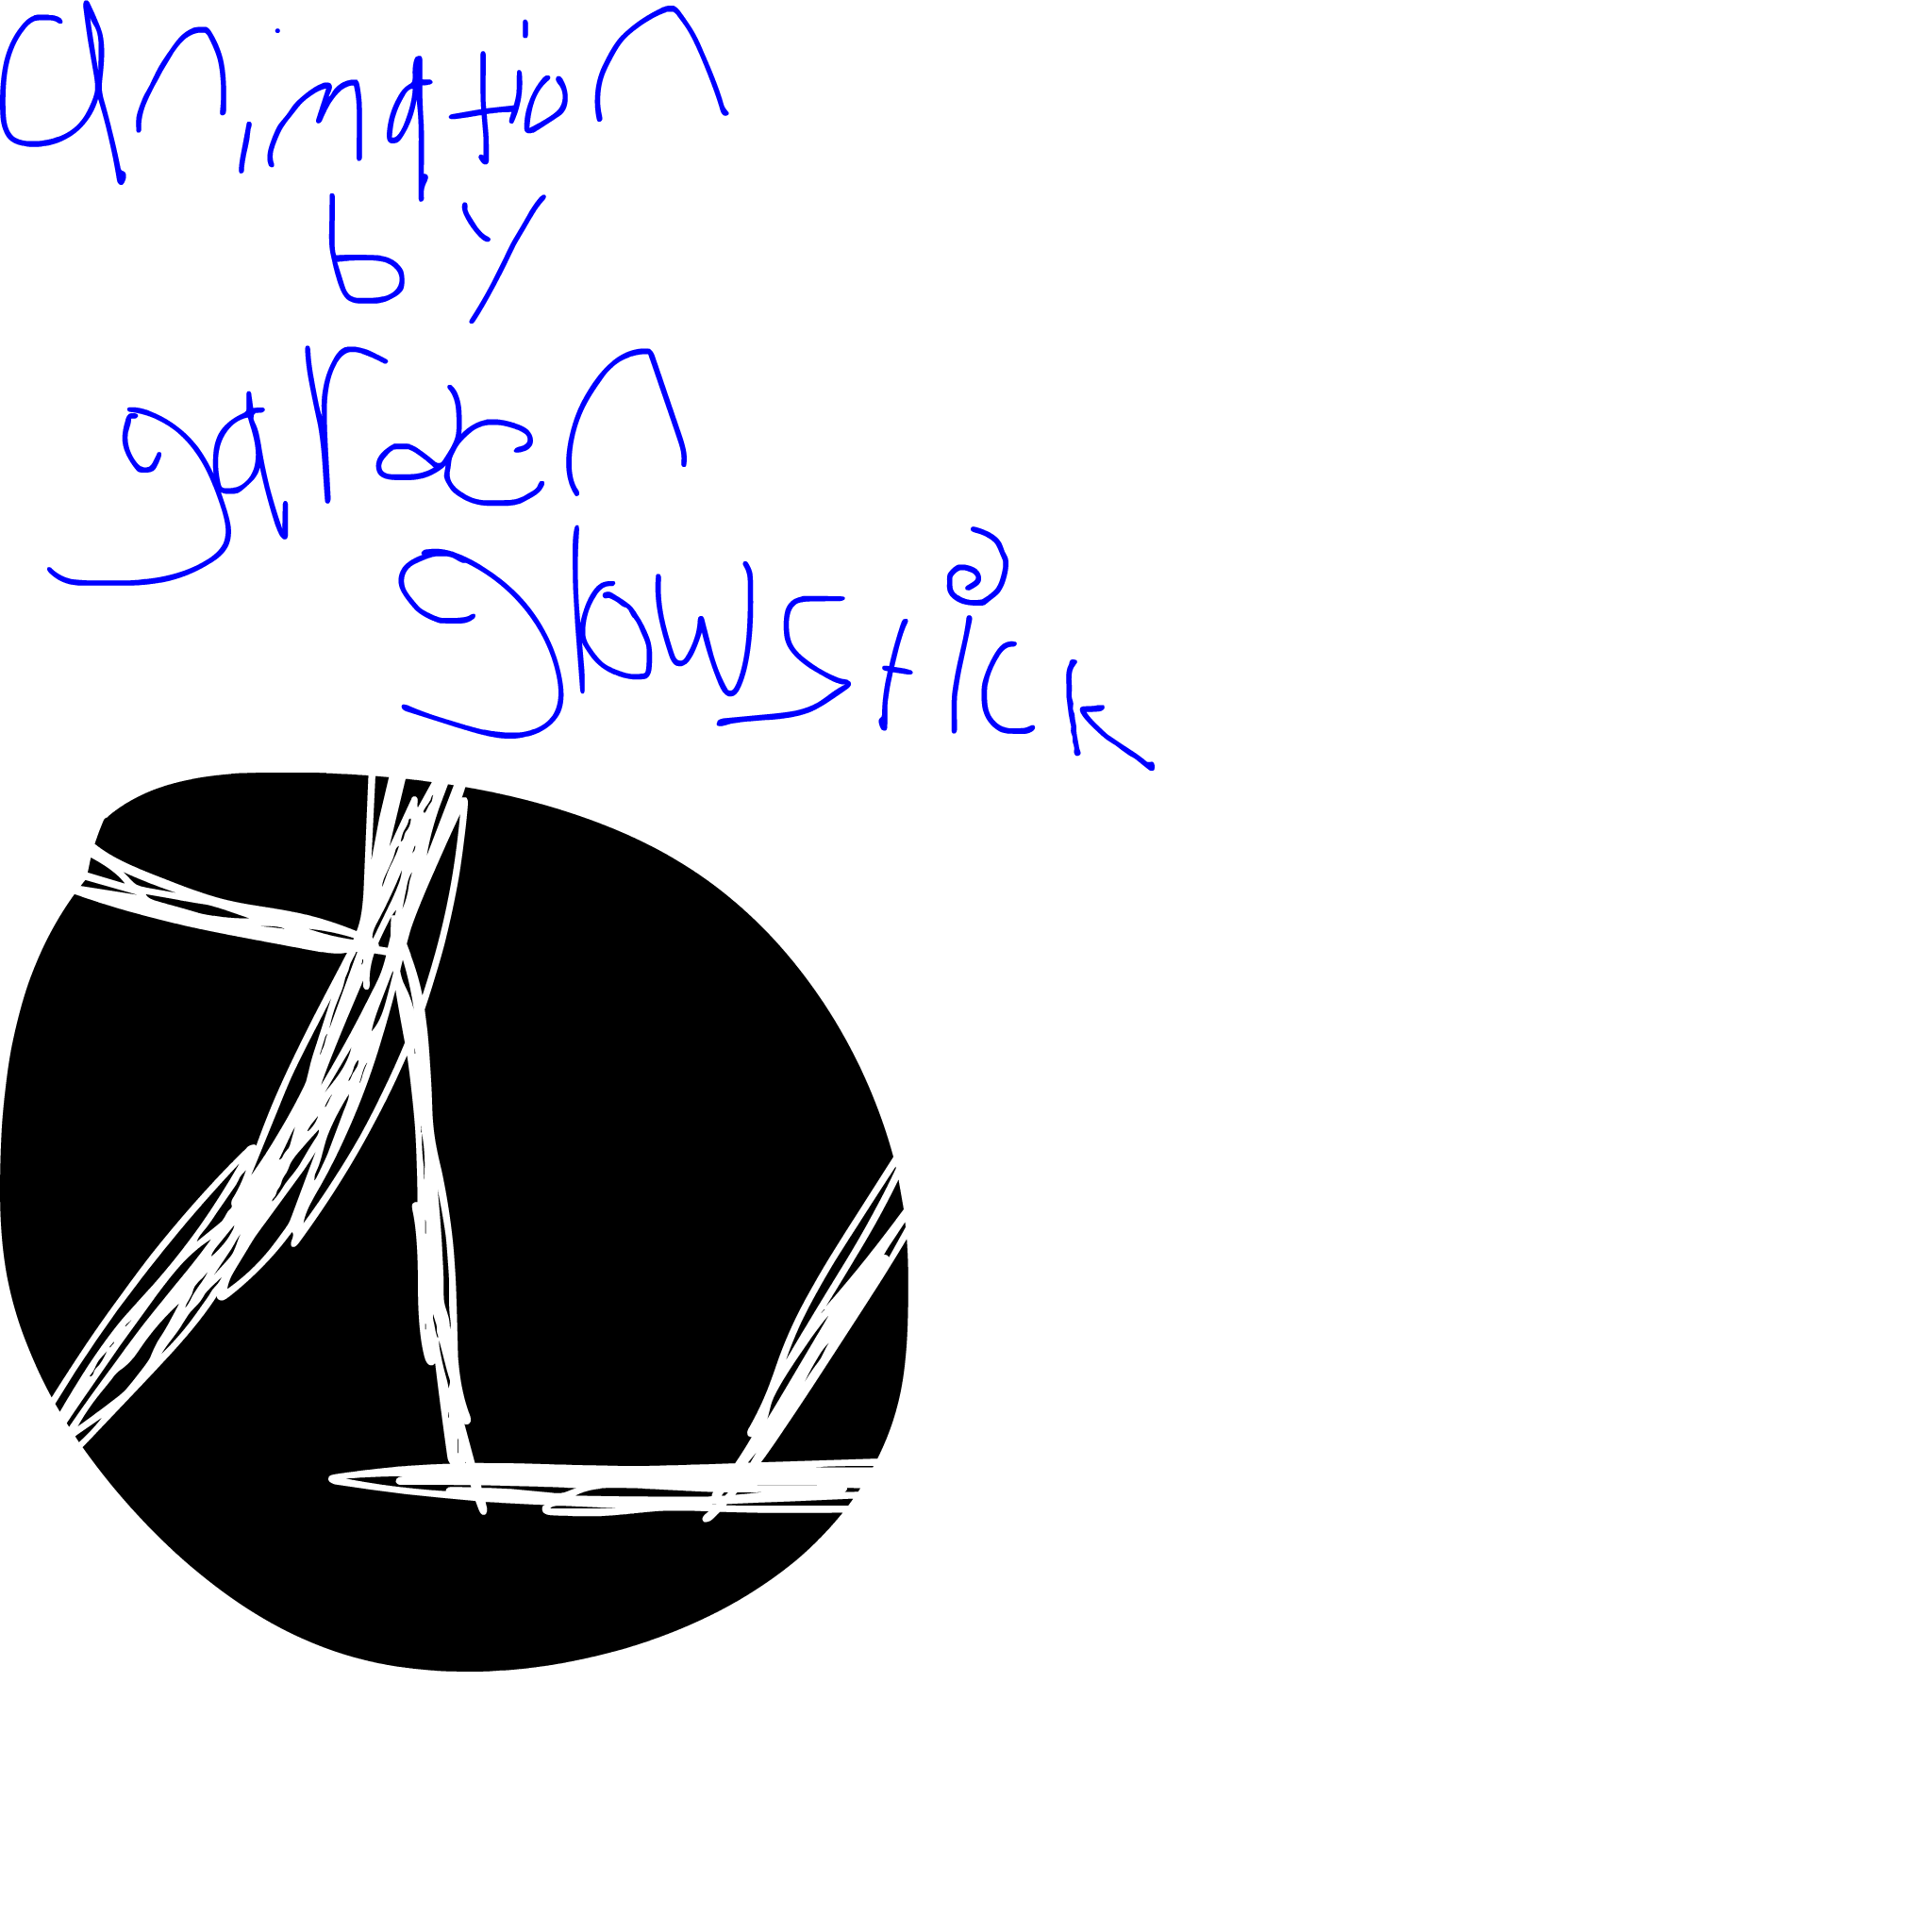 animation
by
garden
glowstick